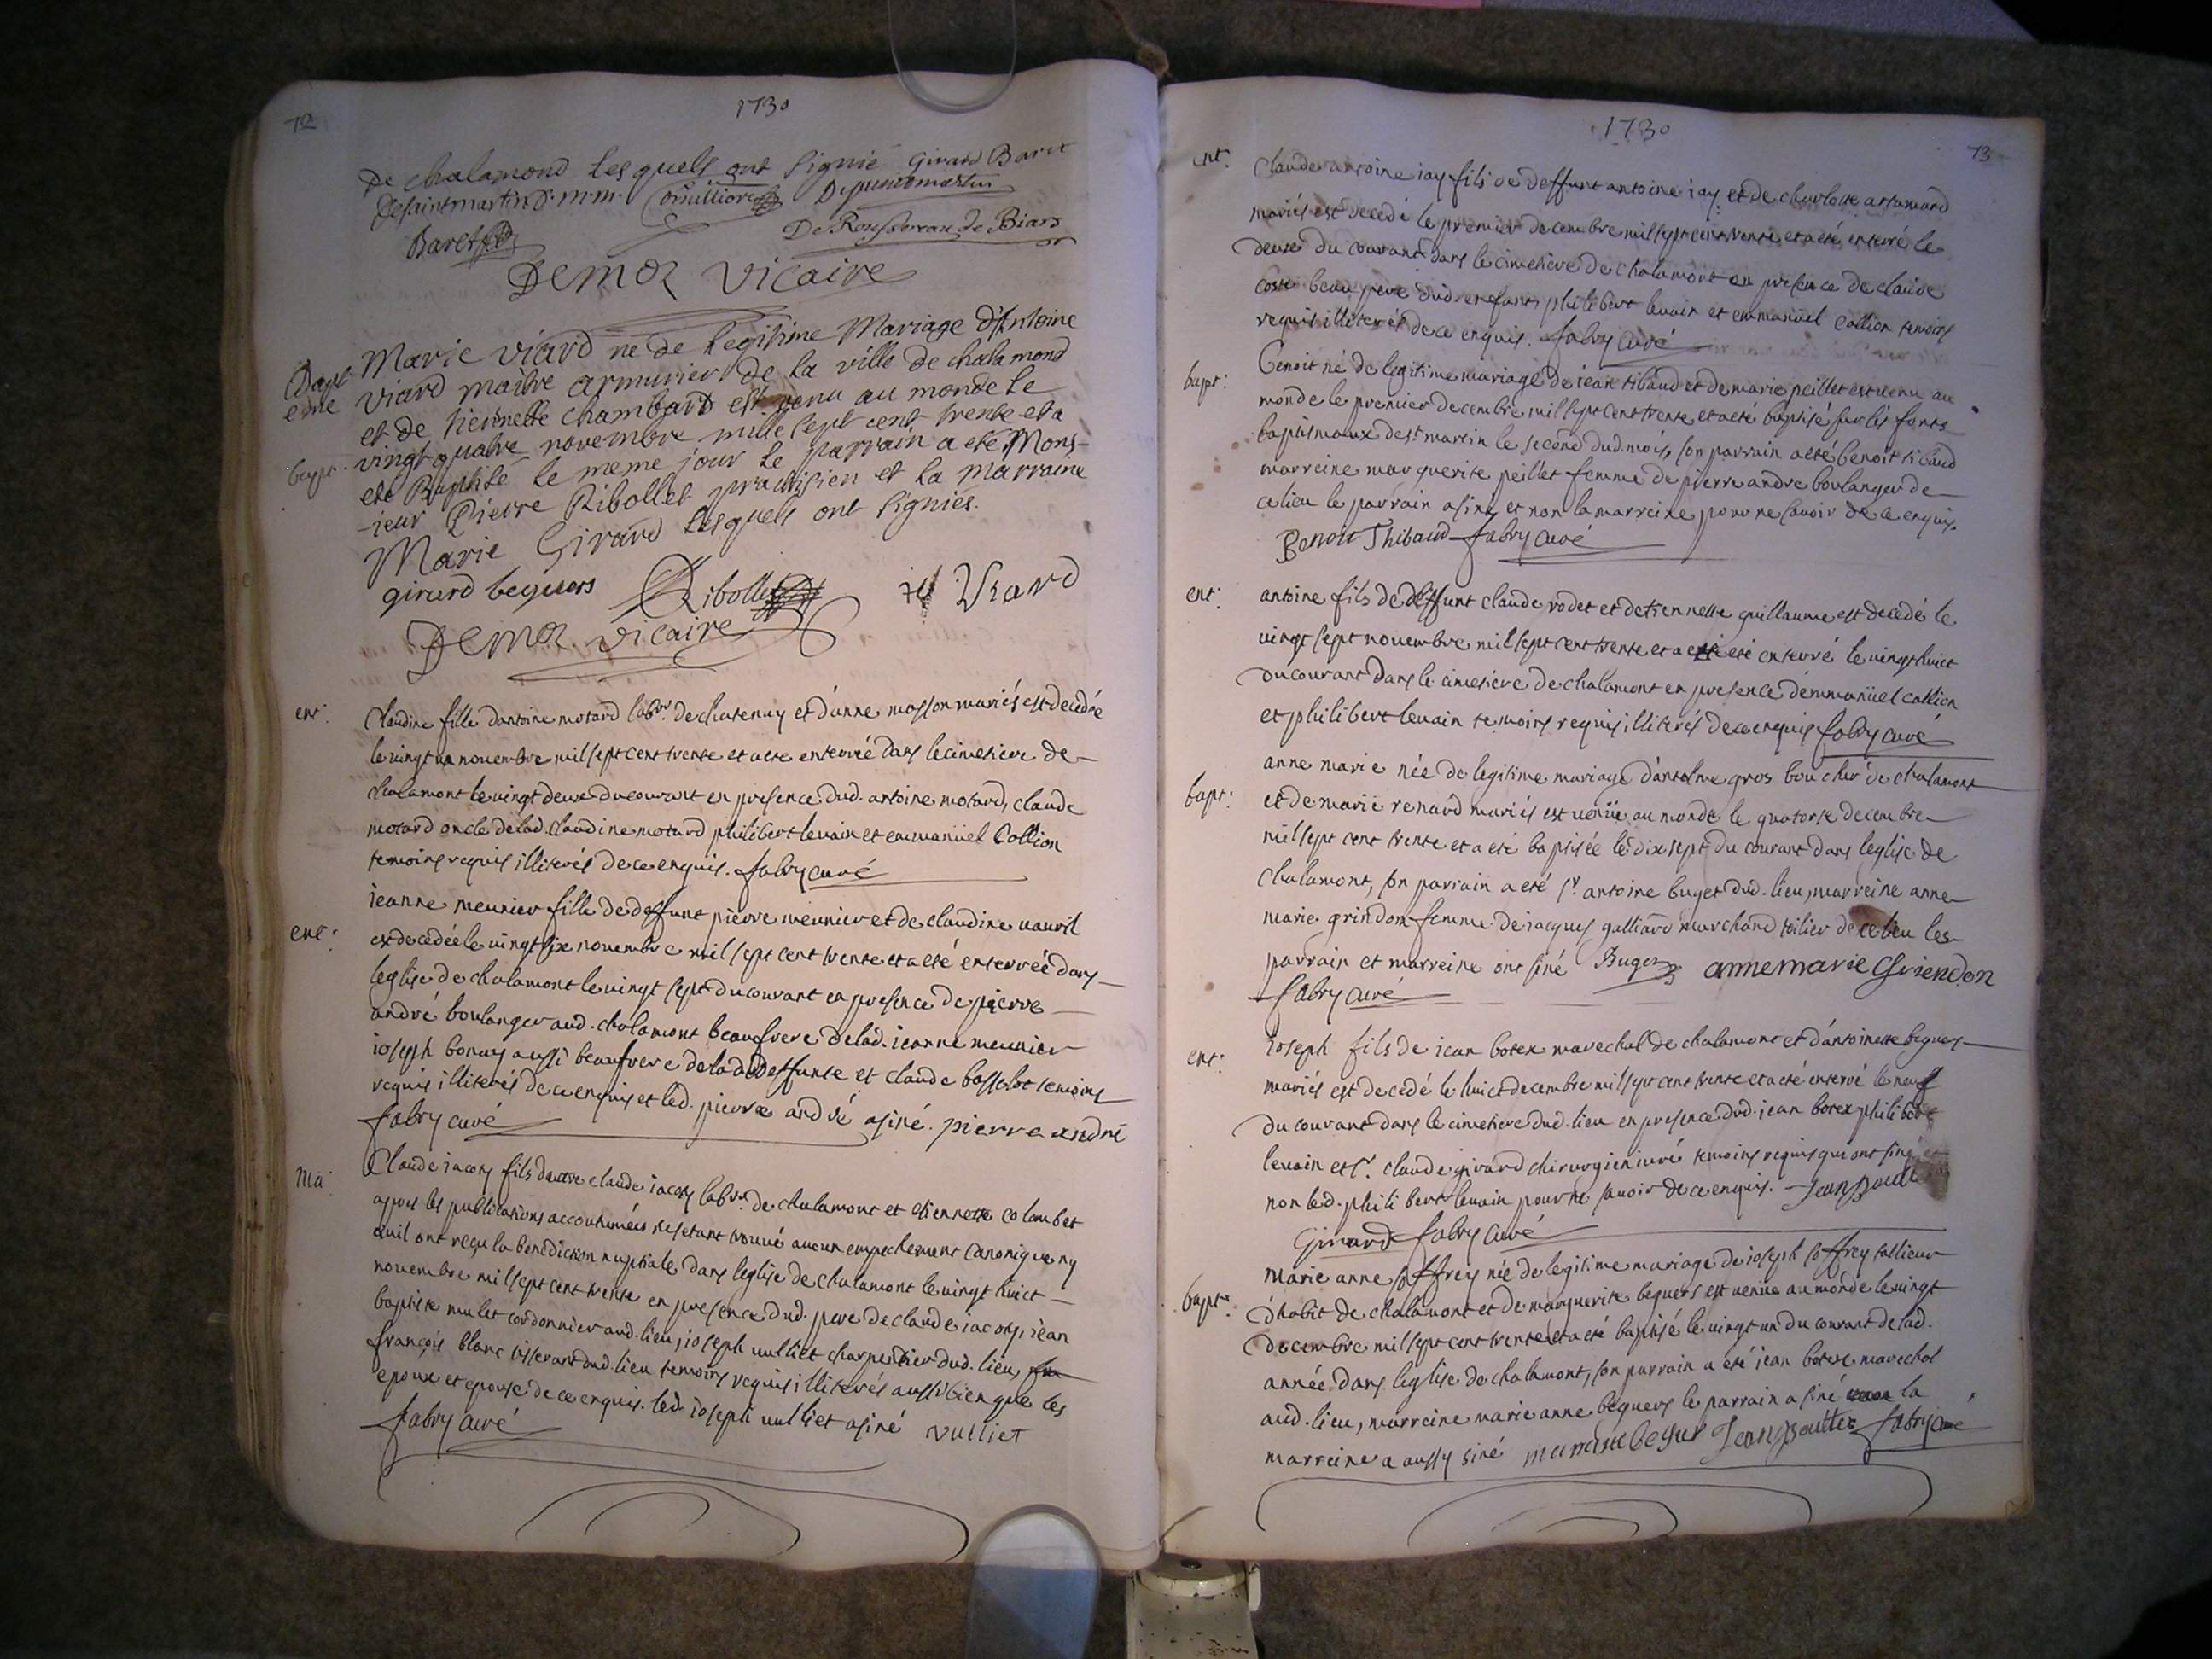 72
1730
De chalamond Lesquels ont signié Girard Baret
Desaintmartin D.m.m.
Baret
De Rousserau de Biars
Demor vicaire
Bapt
eme
Marie viard ne de Legitime Mariage d'Antoine
viard maitre armurier de la ville de chalamond
et de tiennette Chambard est venu au monde le
vingt quatre novembre mille sept cent trente et a
bapt.
eté Baptisé le meme jour le parrain a eté Mons-
-ieur Pierre Ribollet practisien et la Marraine
Marie Girard Lesquels ont signiés.
girard beguers Ribollet Viard
Demor vicaire
ent:
Claudine fille dantoine motard labr. de chatenay et d'anne masson mariés est decedée
le vingt un novembre mil sept cent trente et a ete enterrée dans le cimetiere de
chalamont le vingt deux du courant en presence dud. antoine motard, claude
motard oncle de lad. Claudine motard philibert levain et emmanüel Collion
temoins requis illiterés de ce enquis. fabry curé
ent:
jeanne meunier fille de deffunt pierre meunier et de claudine nauvil
est decedée le vingt six novembre mil sept cent trente et a eté enterrée dans
leglise de chalamont le vingt sept du courant en presence de pierre
andré boulanger aud. chalamont beaufrere de lad. jeanne meunier
joseph bonay aussi beaufrere de lad deffunte et claude basselot temoins
requis illiterés de ce enquis et led. pierre andré a siné. pierre andré
fabry curé
Ma:
Claude jacon fils de claude jacon labr. de chalamont et etiennette colombet
apres les publications accoutumées ne setant trouvé aucun empechement canonique ny
Civil ont reçu la benediction nuptiale dans leglise de chalamont le vingt huict
novembre mil sept cent trente en presence dud. pere de claude jacon, jean
baptiste mulet cordonnier aud. lieu, joseph vulliet charpentier dud. lieu,
françois blanc tisserant dud. lieu temoins requis illiterés aussi bien que les
epoux et epouse de ce enquis. led. joseph vulliet a siné vulliet
fabry curé
1730
73
ent:
Claude antoine jay fils de deffunt antoine jay et de charlotte
mariés est decedé le premier decembre mil sept cent trente et a eté enterré le
deux du courant dans le cimetiere de chalamont en presence de claude
coste beau pere dud. enfant, philibert levain et emmanüel Collion temoins
requis illiterés de ce enquis. fabry curé
bapt:
Benoit né de legitime mariage de jean tibaud et de marie peillet est venu au
monde le premier decembre mil sept cent trente et a eté baptisé sur les fonts
baptismaux de st martin le second dud. mois, son parrain a eté benoit tibaud
marreine marguerite peillet femme de pierre andre boulanger de
ce lieu le parrain a siné et non la marreine pour ne savoir de ce enquis.
Benoit Thibaud fabry curé
ent:
antoine fils de deffunt claude rodet et de tiennette guillaume est decedé le
vingt sept novembre mil sept cent trente et a eté enterré le vingt huict
du courant dans le cimetiere de chalamont en presence d'emmanüel collion
et philibert levain temoins requis illiterés de ce enquis fabry curé
bapt:
anne marie née de legitime mariage d'antelme gros boucher de chalamont
et de marie renard mariés est venüe au monde le quatorze decembre
mil sept cent trente et a eté baptisée le dix sept du courant dans leglise de
chalamont, son parrain a eté sr. antoine buget dud. lieu, marreine anne
marie grindon femme de jacques galliard marchand toilier de ce lieu les
parrain et marreine ont siné Buget annemarie Griendon
fabry curé
ent:
joseph fils de jean botex marechal de chalamont et d'antoinette beguers
mariés est decedé le huict decembre mil sept cent trente et a eté enterré le neuf
du courant dans le cimetiere dud. lieu en presence dud. jean botex philibert
levain et sr. claude girard chirurgien juré temoins requis qui ont siné et
non led. philibert levain pour ne savoir de ce enquis.
Girard fabry curé
bapt:
Marie anne soffrey née de legitime mariage de joseph soffrey tallieur
d'habit de chalamont et de marguerite beguers est venue au monde le vingt
decembre mil sept cent trente et a eté baptisé le vingt un du courant de lad.
année dans leglise de chalamont, son parrain a eté jean botex marechal
aud. lieu, marreine marie anne beguers le parrain a siné la
marreine a aussy siné fabry curé